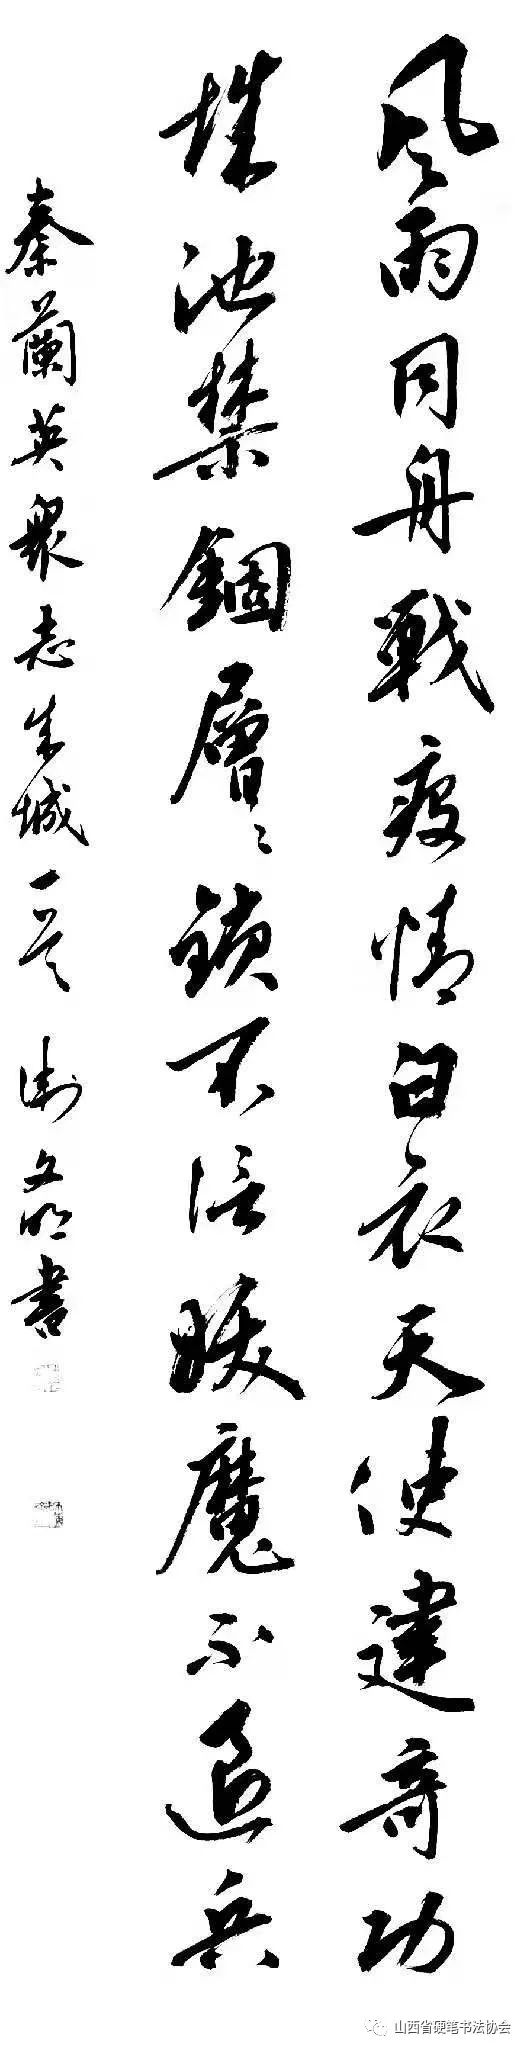 風雨同舟戰疫情白衣天使建奇功
城池禁錮層〻鎖不信魔不退兵
秦蘭英衆志成城一首 謝文明書
山西省硬笔书法协会